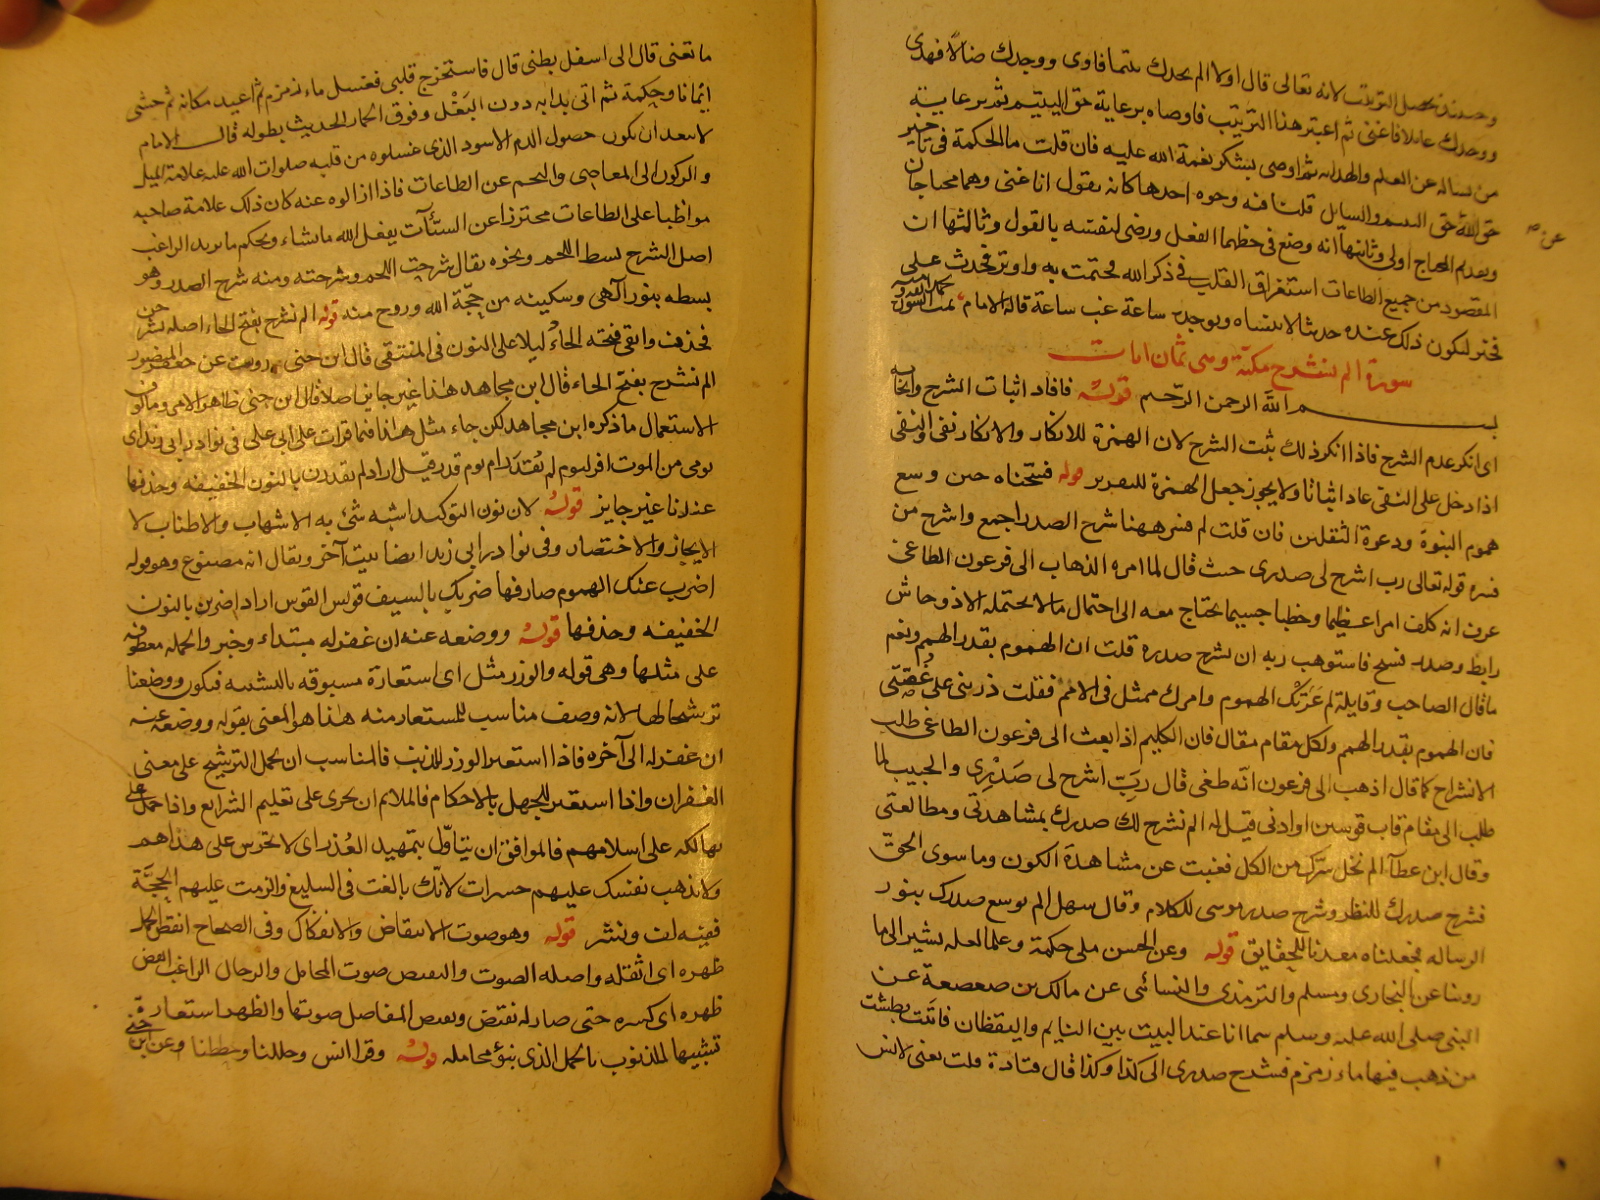 وحينئذ يحصل الترتيب لانه تعالى قال اولا الم يجدك يتيما فاوى ووجدك ضالا فهدى
ووجدك عايلا فاغنى ثم اعتبر هذا الترتيب فاوصاه برعاية حق اليتيم ثم برعاية
من يساله عن العلم والهداية ثم اوصى بشكر نعمة الله عليه فان قلت ما الحكمة في تاخير
حق الله حق اليتيم والسايل قلنا فيه وجوه احدها كانه يقول انا غنى وهما محتاجان
عن
وتقديم المحتاج اولى وثانيها انه وضع في حظهما الفعل ورضى لنفسه بالقول وثالثها ان
المقصود من جميع الطاعات استغراق القلب في ذكر الله فختمت به واوثر فحدث على
فخبر ليكون ذلك عنده حديثا لا ينساه ويوجده ساعة غب ساعة قاله الامام تمت السورة
بحمد الله
سورة الم نشرح مكية وهى ثمان ايات
بسم الله الرحمن الرحيم قوله فافاد اثبات الشرح وايجابه
اى انكر عدم الشرح فاذا انكر ذلك ثبت الشرح لان الهمزة للانكار والانكار نفى والنفى
اذا دخل على النفى عاد اثباتا ولا يجوز جعل الهمزة للتقرير قوله فسحناه حتى وسع
هموم النبوة ودعوة الثقلين فان قلت لم فسر ههنا شرح الصدر اجمع واشرح من
فسره قوله تعالى رب اشرح لى صدرى حيث قال لما امره الذهاب الى فرعون الطاغى
عرف انه كلف امرا عظيما وخطبا جسيما يحتاج معه الى احتمال ما لا يحتمله الا ذو جاش
رابط وصدر فسيح فاستوهب ربه ان يشرح صدره قلت ان الهموم بقدر الهمم ونعم
ما قال الصاحب وقايلة لم عرتك الهموم وامرك ممتثل في الامم فقلت ذرينى على غصتى
فان الهموم بقدر الهمم ولكل مقام مقال فان الكليم اذا بعث الى فرعون الطاغى طلب
الانشراح كما قال اذهب الى فرعون انه طغى قال رب اشرح لى صدرى والحبيب لما
طلب الى مقام قاب قوسين او ادنى قيل له الم نشرح لك صدرك بمشاهدتى ومطالعتى
وقال ابن عطا الم نخل سرك من الكل فغبت عن مشاهدة الكون وما سوى الحق
فشرح صدرك للنظر وشرح صدر موسى للكلام وقال سهل الم نوسع صدرك بنور
الرساله فجعلناه معدنا للحقايق قوله وعن الحسن ملى حكمة وعلما لعله يشير الى ما
روينا عن البخارى ومسلم والترمذى والنسائى عن مالك بن صعصعة عن
النبى صلى الله عليه وسلم بينما انا عند البيت بين النايم واليقظان فاتيت بطشت
من ذهب فيها ماء زمزم فشرح صدرى الى كذا وكذا قال قتادة قلت يعنى لانس
ما تعنى قال الى اسفل بطنى قال فاستخرج قلبى فغسل بماء زمزم ثم اعيد مكانه ثم حشى
ايمانا وحكمة ثم اتى بدابه دون البغل وفوق الحمار الحديث بطوله قال الامام
لا يبعد ان يكون حصول الدم الاسود الذى غسلوه من قلبه صلوات الله عليه علامة الميل
والركون الى المعاصى والحجم عن الطاعات فاذا ازالوه عنه كان ذلك علامة صاحبه
مواظبا على الطاعات محترزا عن السيات يفعل الله ما يشاء ويحكم ما يريد الراغب
اصل الشرح بسط اللحم ونحوه يقال شرحت اللحم وشرحته ومنه شرح الصدر وهو
بسطه بنور الهى وسكينه من جهة الله وروح منه قوله الم نشرح بفتح الحاء اصله نشرحن
فحذفت وابقى فتحه الحاء ليلا على النون في المنتقى قال ابن جنى رويت عن جعفر المنصور
الم نشرح بفتح الحاء قال ابن مجاهد هذا غير جايز اصلا قال ابن جنى ظاهر الامر ومالوف
الاستعمال ما ذكره ابن مجاهد لكن جاء مثل هذا فيما قرات على ابى على في نوادر ابى زيد اى
يومى من الموت افر ايوم لم يقدر ام يوم قدر قيل اراد لم يقدرن بالنون الخفيفه وحذفها
عندنا غير جايز قوله لان نون التوكيد اشبه شئ به الاسهاب والاطناب لا
الايجاز والاختصار وفي نوادر ابى زيد ايضا بيت اخر ويقال انه مصنوع وهو قوله
اضرب عنك الهموم صارفها ضربك بالسيف قونس القوس اراد اضربن بالنون
الخفيفه وحذفها قوله ووضعه عنه ان غفر له مبتداء وخبر والجمله معطوفه
على مثلها وهى قوله والوزر مثل اى استعارة مسبوقه بالتشبيه فيكون ووضعنا
ترشيحا لها لانه وصف مناسب للمستعار منه هذا هو المعنى بقوله ووضعه عنه
ان غفر له الى آخره فاذا استعير الوزر للذنب فالمناسب ان يحمل الترشيح على معنى
الغفران واذا استعير للجهل بالاحكام فالملايم ان يجرى على تعليم الشرايع واذا حمل على
تهالكه على اسلامهم فالموافق ان يتاول بتمهيد العذر اى لا تحرص على هذا هم
ولا تذهب نفسك عليهم حسرات لانك بالغت في التبليغ والزمت عليهم الحجة
ففيه لف ونشر قوله وهو صوت الانتقاض والانفكاك وفي الصحاح انقض الحمل
ظهره اى اثقله واصله الصوت والنقيض صوت المحامل والرحال الراغب انقض
ظهره اى كسره حتى صار له نقيض ونقيض المفاصل صوتها والظهر استعارة
تشبيها للذنوب بالحمل الذى ينوء بحامله قوله وقرا انس وحللنا وحططنا وعن ابن جنى